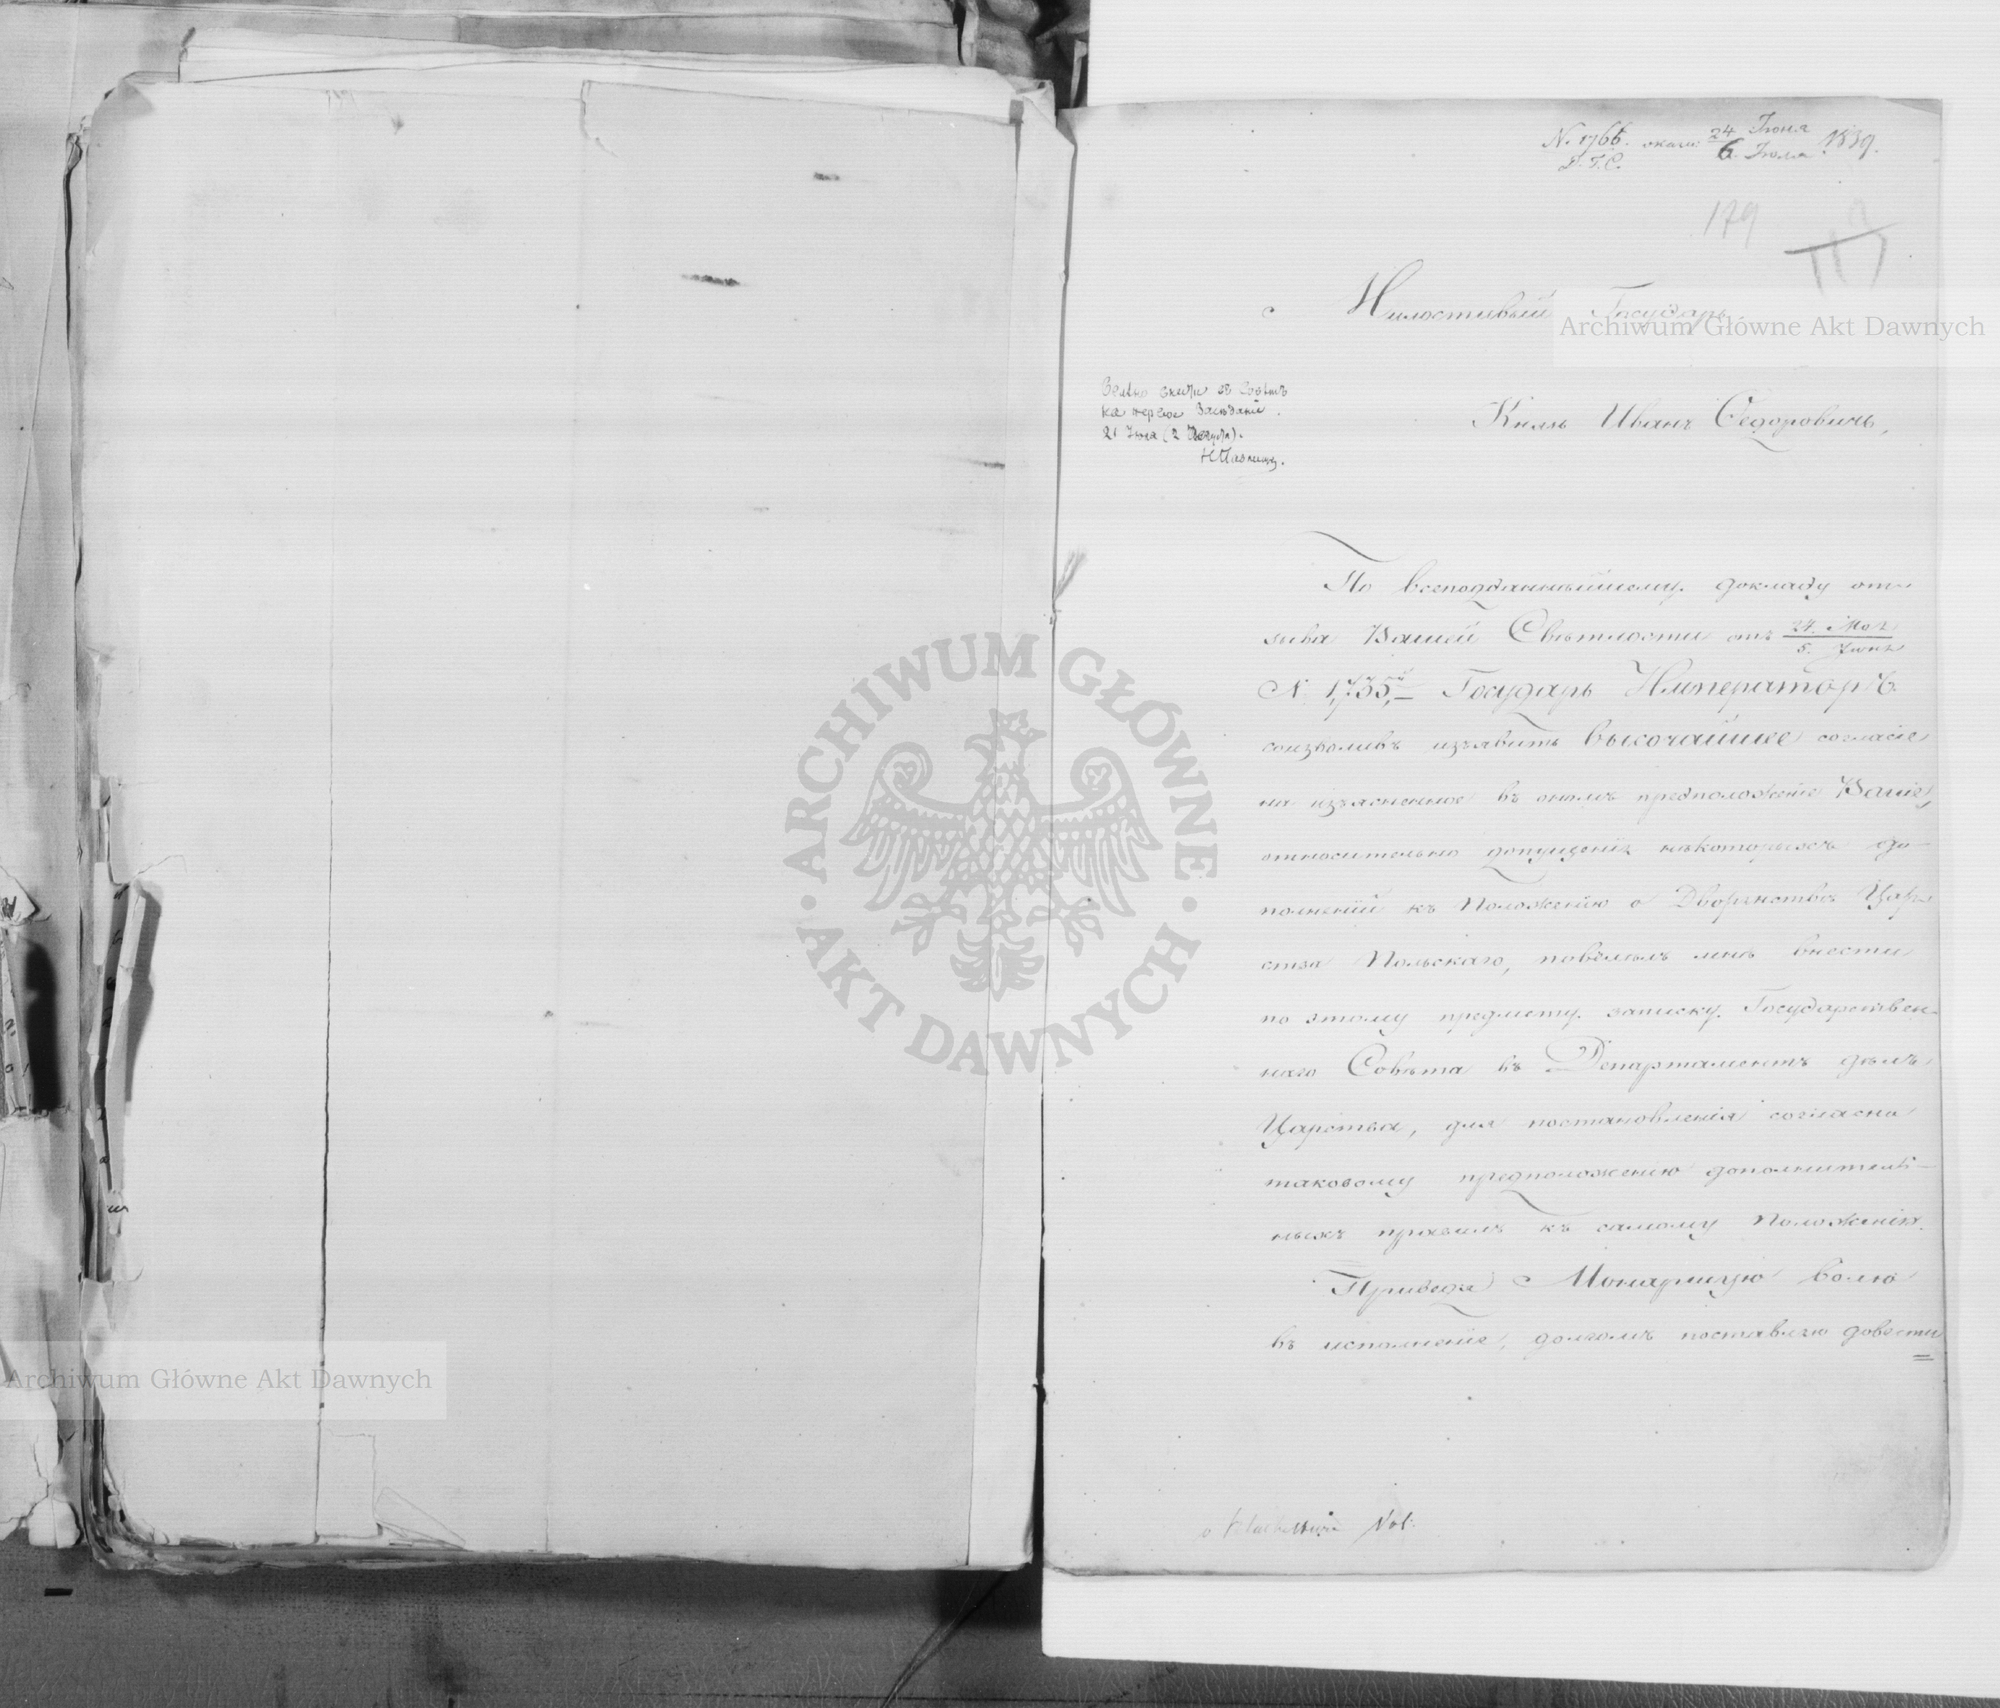 N. 1766.
24 Іюня
6. Іюля 1839.
179
Милостивый Государь
Archiwum Główne Akt Dawnych
Князь Иванъ Ѳедоровичь,
21 Іюля (2 Августа).
По всеподданнѣйшему докладу от-
зыва Вашей Свѣтлости отъ 24. Мая
5. Іюня
N. 1,735, Государь Императоръ
соизволивъ изъявить Высочайшее согласіе
на изъясненное въ ономъ предположеніе Ваше,
относительно допущенія нѣкоторыхъ до-
полненій къ Положенію о Дворянствѣ Цар-
ства Польскаго, повелѣлъ мнѣ внести
по этому предмету записку Государствен-
наго Совѣта въ Департаментъ дѣлъ
Царства, для постановленія согласно
таковому предположенію дополнитель-
ныхъ правилъ къ самому Положенію.
Приведя Монаршую волю
въ исполненіе, долгомъ поставляю довести
ARCHIWUM GŁÓWNE
AKT DAWNYCH
Archiwum Główne Akt Dawnych